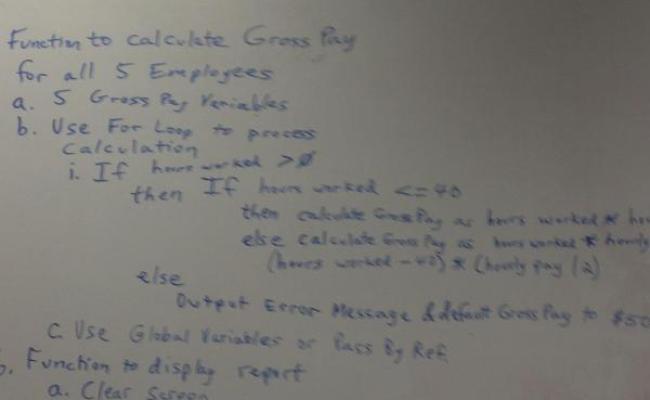 Function to calculate Gross Pay
for all 5 Employees
a. 5 Gross Pay Variables
b. Use For Loop to process
Calculation
i. If hours worked > 0
then If hours worked <= 40
then calculate Gross Pay as hours worked *
else calculate Gross Pay as hours worked * hourly
(hours worked - 40) * (hourly pay / 2)
else
Output Error Message & default Gross Pay to
c. Use Global Variables or Pass By Ref.
Function to display report
a. Clear Screen